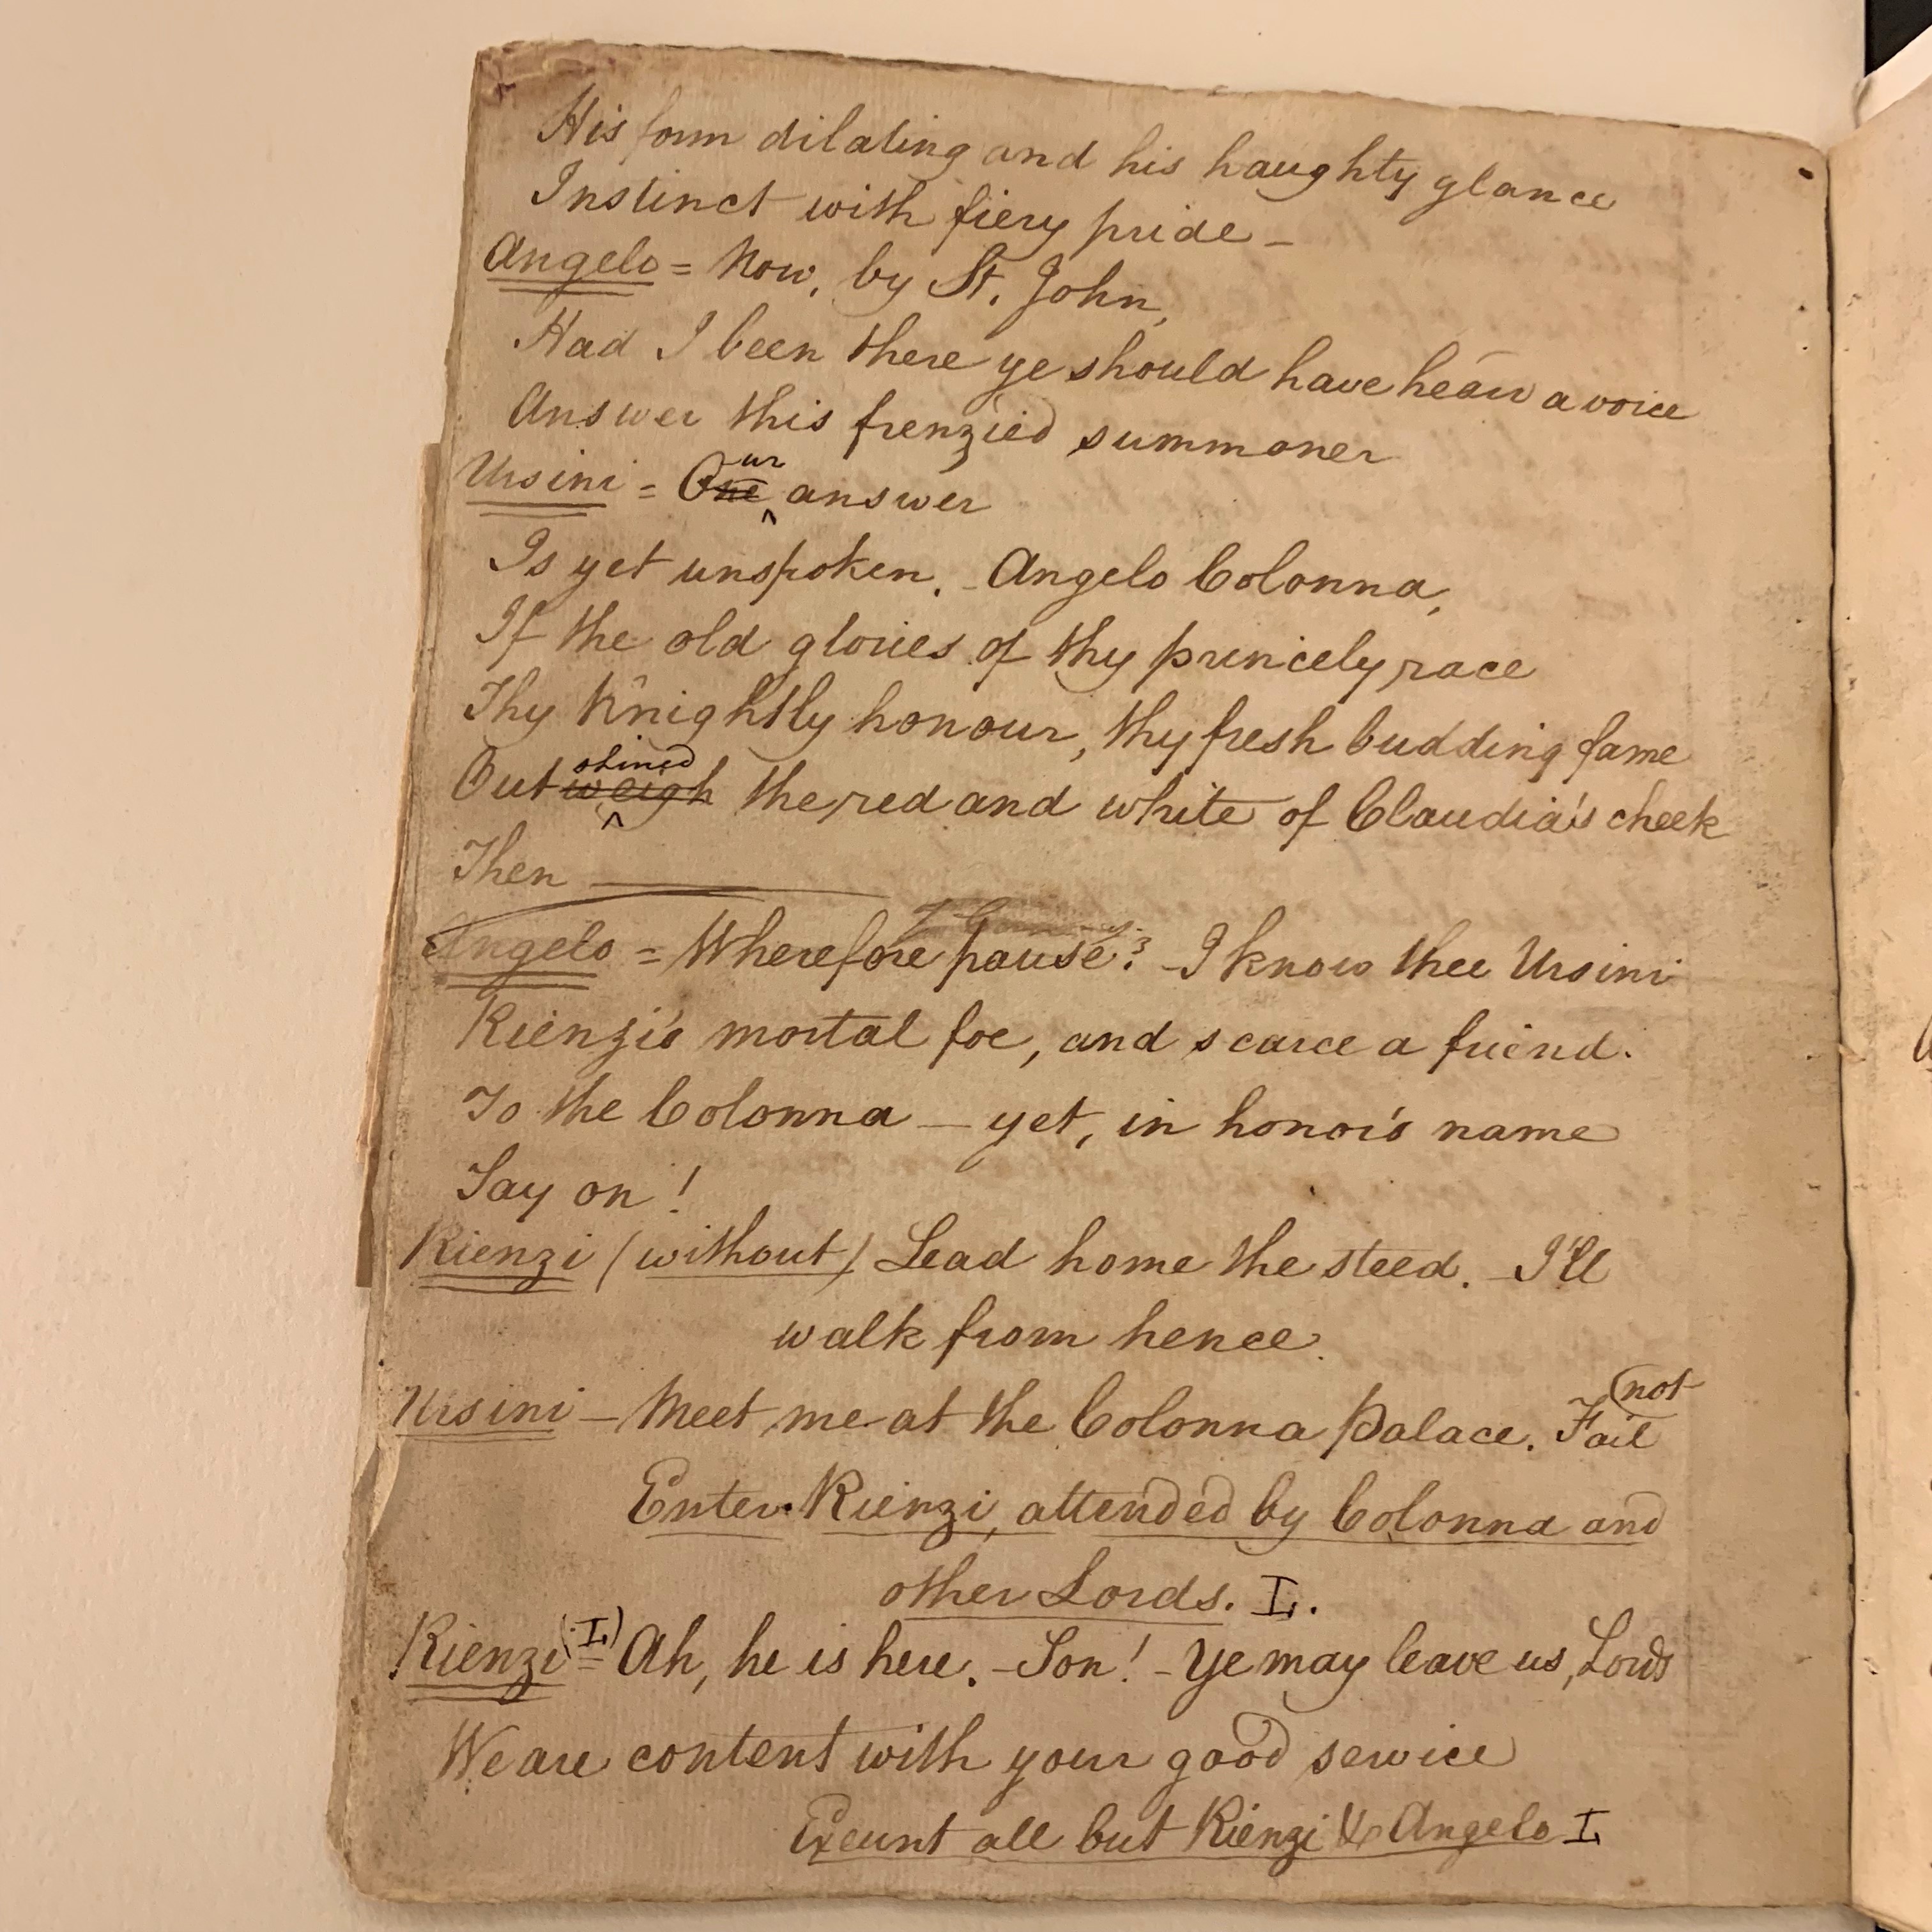 His form dilating and his haughty glance
Instinct with fiery pride –
Angelo = Now, by St. John,
Had I been there ye should have hear a voice
Answer this frenzied summoner
ur
Ursini = One answer
Is yet unspoken. – Angelo Colonna,
If the old glories of thy princely race
Thy Knightly honour, thy fresh budding fame
shined
Outweigh the red and white of Claudia's cheek
Then ———
Angelo = Wherefore pause? – I know thee Ursini
Rienzi's mortal foe, and scarce a friend.
To the Colonna – yet, in honor's name
Say on!
Rienzi (without) Lead home the steed. – I'll
walk from hence.
not
Ursini – Meet me at the Colonna Palace. Fail
Enter Rienzi, attended by Colonna and
other Lords. L.
Rienzi (L) = Ah, he is here. – Son! – Ye may leave us, Lords
We are content with your good service
Exeunt all but Rienzi & Angelo L